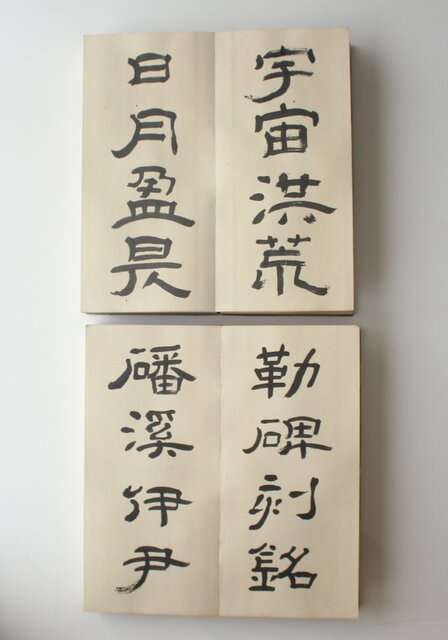 宇宙洪荒
日月盈昃
勒碑刻銘
磻溪伊尹